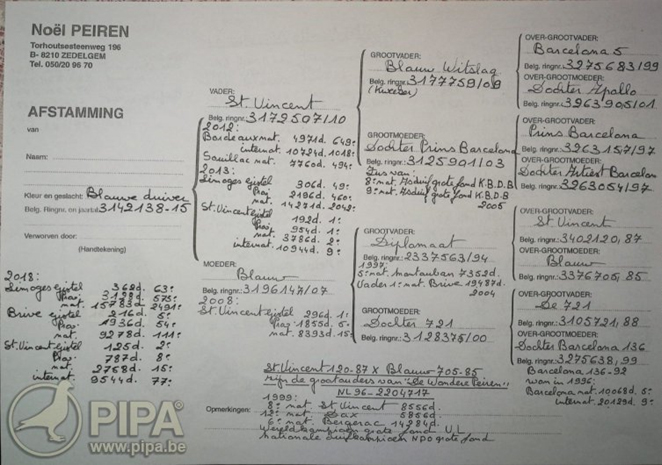 Noël PEIREN
Torhoutsesteenweg 196
B- 8210 ZEDELGEM
Tel. 050/20 96 70
AFSTAMMING
van
Naam:
Kleur en geslacht: Blauwe duivin
Belg. Ringnr. en jaartal 3142138-15
Verworven door:
(Handtekening)
2018:
Limoges gistel 368d. 63e
Prov 3128d. 575e
nat 15783d. 2491e
Brive gistel 216d. 5e
Prov 1936d. 54e
nat. 9278d. 111e
St. Vincent gistel 125d. 2e
Prov. 787d. 8e
nat. 2768d. 15e
internat. 9544d. 77e
VADER:
St. Vincent
Belg. ringnr. 3172507/10
2012:
Bordeaux nat. 4971d. 649e
internat. 10724d. 1018e
Souillac nat. 7760d. 494e
2013:
Limoges gistel 306d. 49e
Prov. 2196d. 460e
nat. 14271d. 2048e
St. Vincent gistel 192d. 1e
Prov. 954d. 1e
nat. 3786d. 2e
internat. 10944d. 9e
MOEDER:
Blauw
Belg. ringnr. 3196147/07
2008:
St. Vincent gistel 296d. 1e
Prov. 1855d. 5e
nat. 8393d. 15e
GROOTVADER:
Blauw Witslag
Belg. ringnr. 3177759/09
(Kweker)
GROOTMOEDER:
Dochter Prins Barcelona
Belg. ringnr. 3125901/03
Zus van:
8e nat. Asduif grote fond K.B.D.B
9e nat. Asduif grote fond K.B.D.B
2005
GROOTVADER:
Diplomaat
Belg. ringnr. 2337563/94
1997:
5e nat. Montauban 7352d.
Vader 1e nat. Brive 19487d.
2004
GROOTMOEDER:
Dochter 721
Belg. ringnr. 3128375/00
OVER-GROOTVADER:
Barcelona 5
Belg. ringnr. 3275683/99
OVER-GROOTMOEDER:
Dochter Apollo
Belg. ringnr. 3263905/01
OVER-GROOTVADER:
Prins Barcelona
Belg. ringnr. 3263157/97
OVER-GROOTMOEDER:
Dochter Artiest Barcelona
Belg. ringnr. 3263054/97
OVER-GROOTVADER:
St. Vincent
Belg. ringnr. 3402120,87
OVER-GROOTMOEDER:
Blauw
Belg. ringnr. 3376705,85
OVER-GROOTVADER:
De 721
Belg. ringnr. 3105721,88
OVER-GROOTMOEDER:
Dochter Barcelona 136
Belg. ringnr. 3275638,99
Barcelona 136-92
won in 1996:
Barcelona nat. 10068d. 5e
internat. 20129d. 9e
St Vincent 120-87 X Blauw 705-85
zijn de grootouders van "De Wondere Peiren"
NL96-2204717
Opmerkingen:
1999:
8e nat St Vincent 8556d.
12e nat Dax 5856d.
6e nat. Bergerac 14284d.
Wereldkampioen grote fond U.L
nationale duifkampioen NPO grote fond
PIPA
www.pipa.be